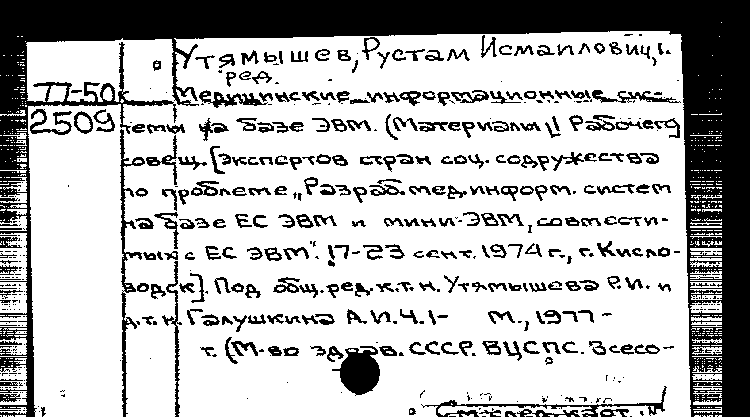 Утямышев, Рустам Исмаилович,
ред.
77-50к Медицинские информационные сис-
2509 темы на базе ЭВМ. (Материалы II Рабочего
совещ. [экспертов стран соц. содружества
по проблеме „Разраб. мед. информ. систем
на базе ЕС ЭВМ и мини-ЭВМ, совмести-
мых с ЕС ЭВМ". 17-23 сент. 1974 г., г. Кисло-
водск]. Под общ. ред. к.т.н. Утямышева Р.И. и
д.т.н. Галушкина А.И. Ч.1- М., 1977-
т. (М-во здрав. СССР. ВЦСПС. Всесо-
См. след. карт.